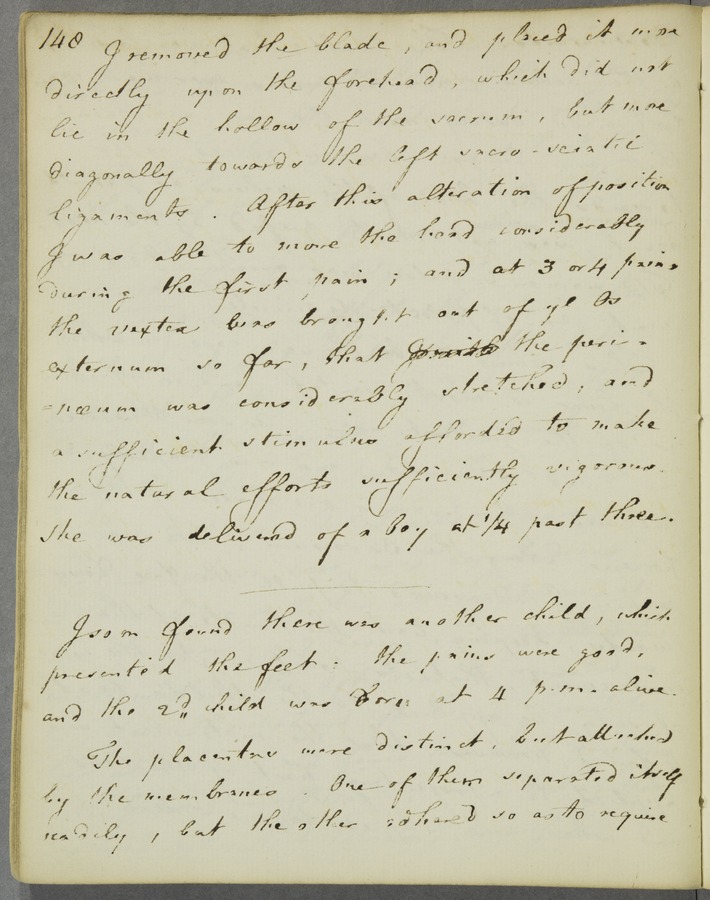 148 I removed the blade, and placed it more
directly upon the forehead, which did not
lie in the hollow of the sacrum, but more
diagonally towards the left sacro-sciatic
ligaments. After this alteration of position
I was able to move the head considerably
during the first pain; and at 3 or 4 pains
the vertex was brought out of ye Os
externum so far, that the peri-
=næum was considerably stretched, and
a sufficient stimulus afforded to make
the natural efforts sufficiently vigorous.
She was delivered of a boy at 1/4 past three.
I soon found there was another child, which
presented the feet: the pains were good,
and the 2d child was born at 4 p.m. alive.
The placentas were distinct, but attached
by the membranes. One of them separated itself
readily, but the other adhered so as to require